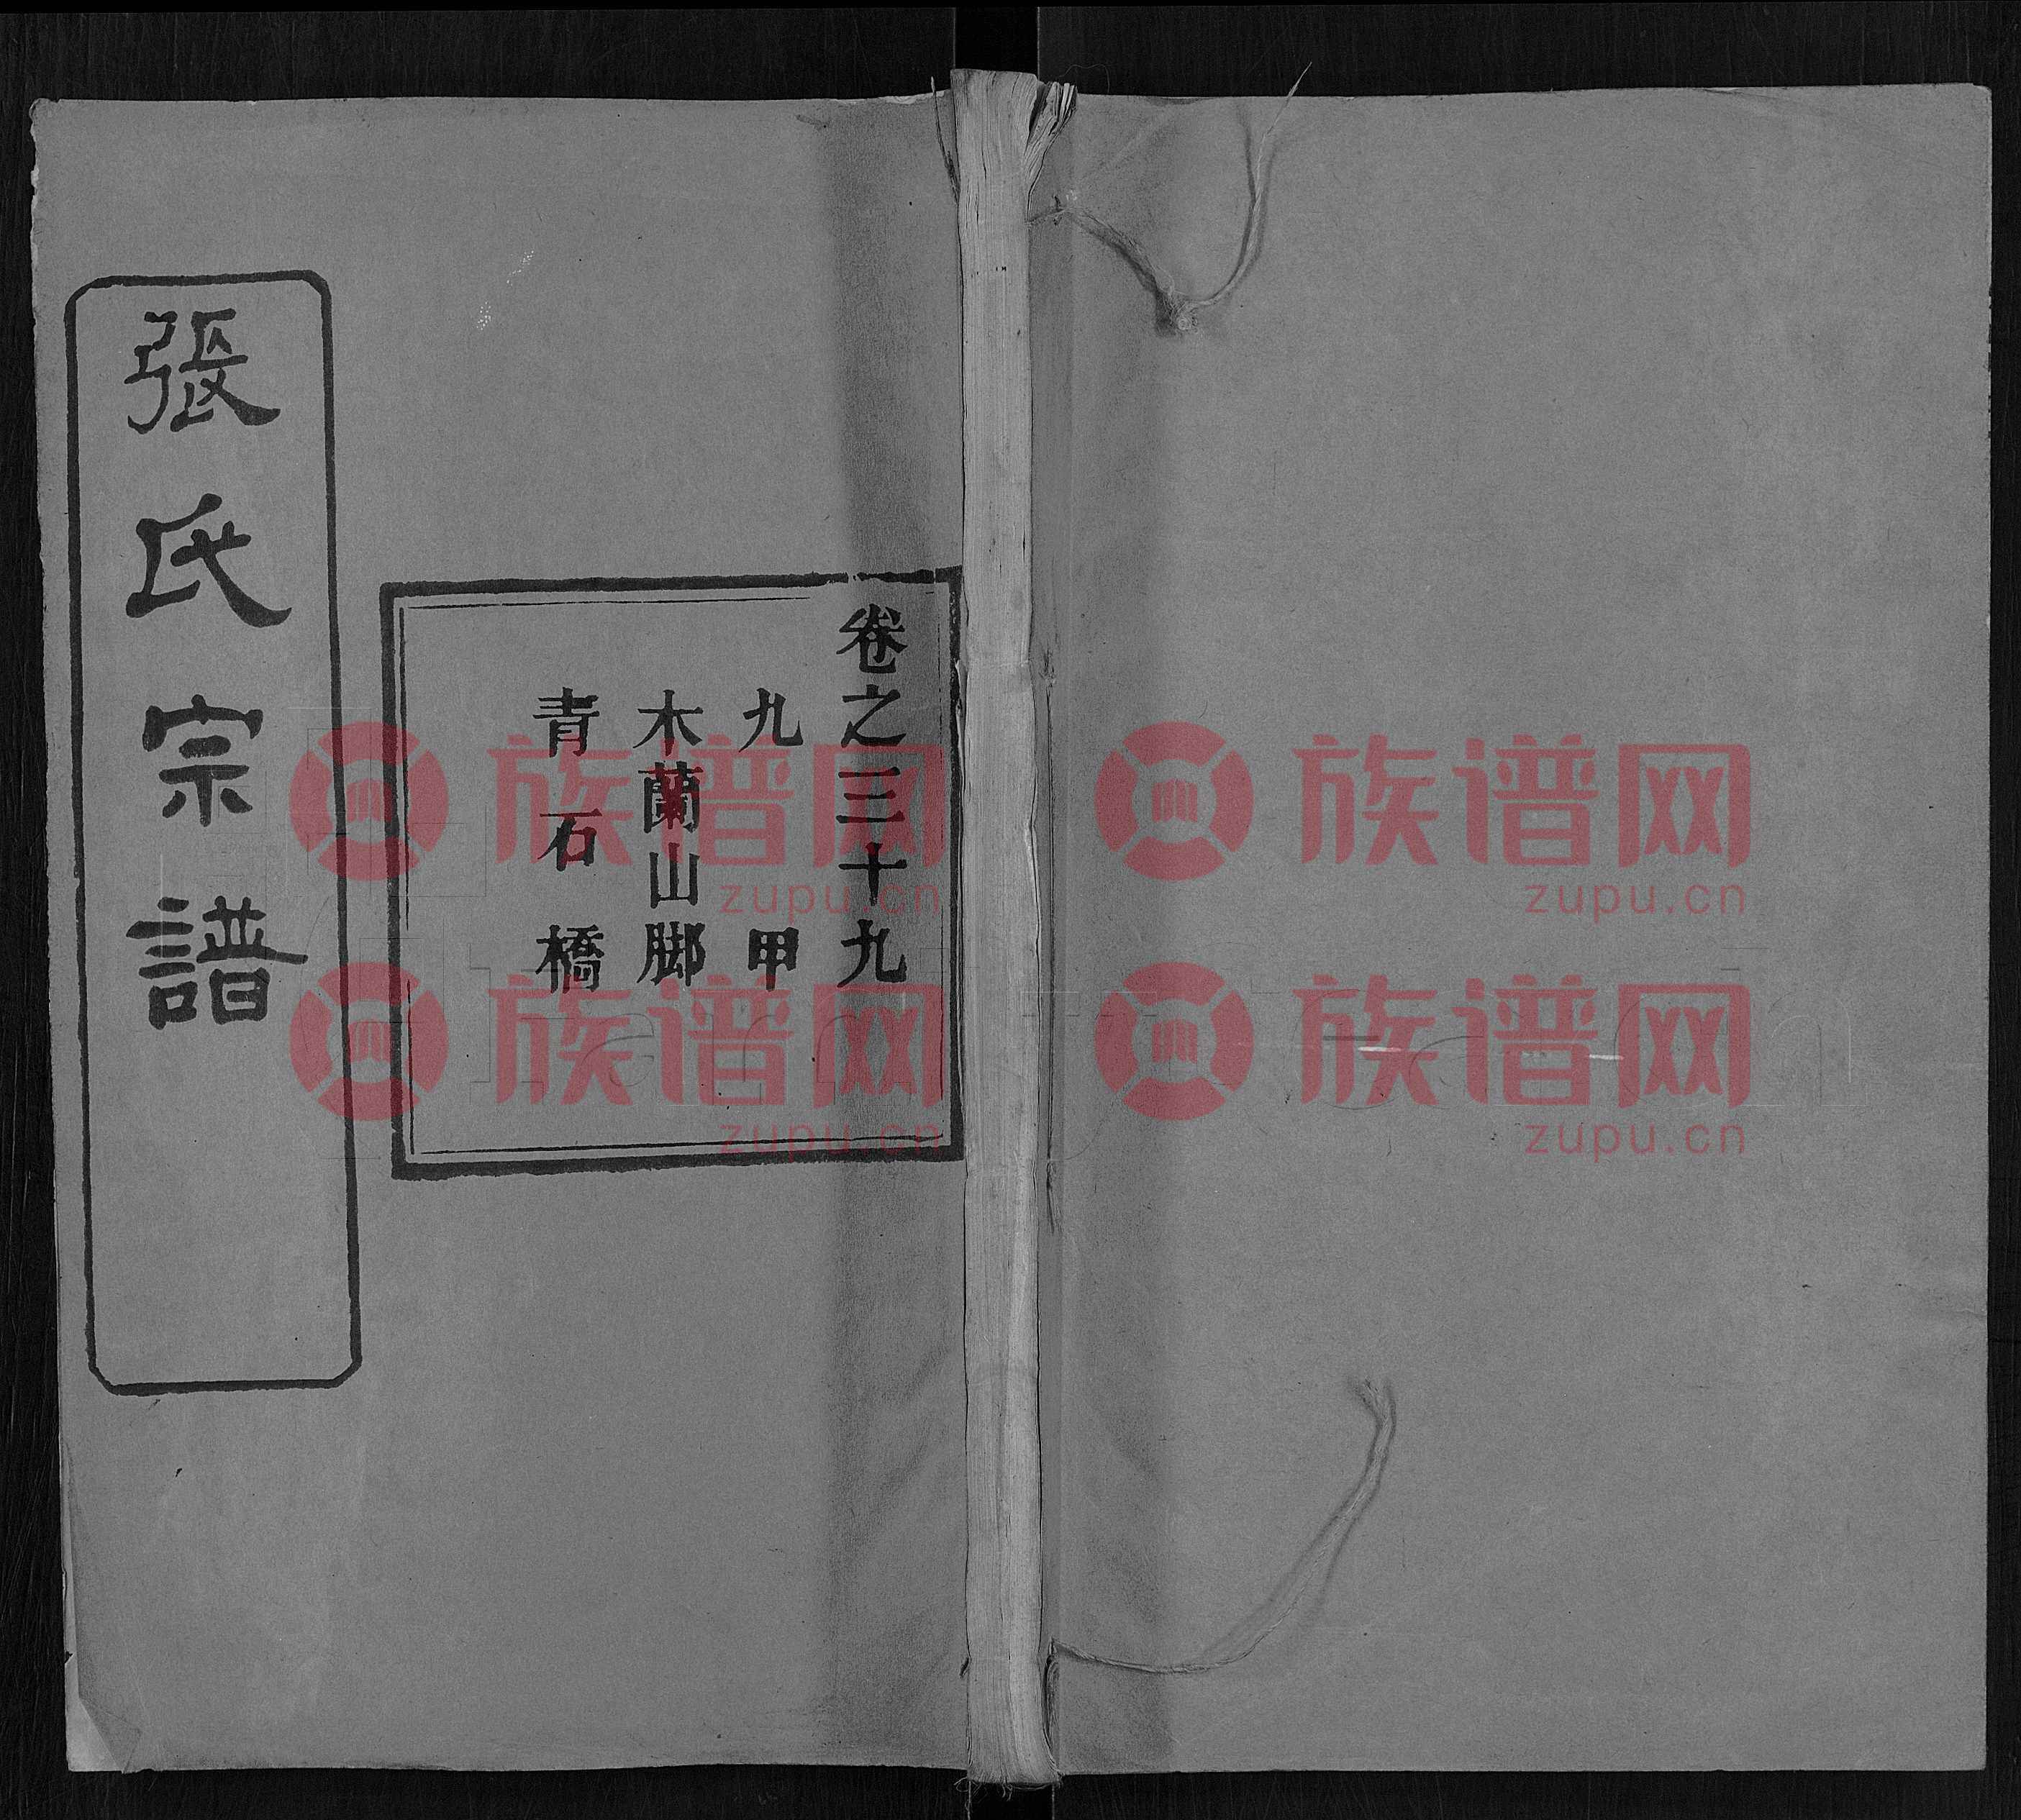 張氏宗譜
卷之三十九
九甲
木蘭山脚
青石橋
族谱网
zupu.cn
族谱网
zupu.cn
族谱网
zupu.cn
族谱网
zupu.cn